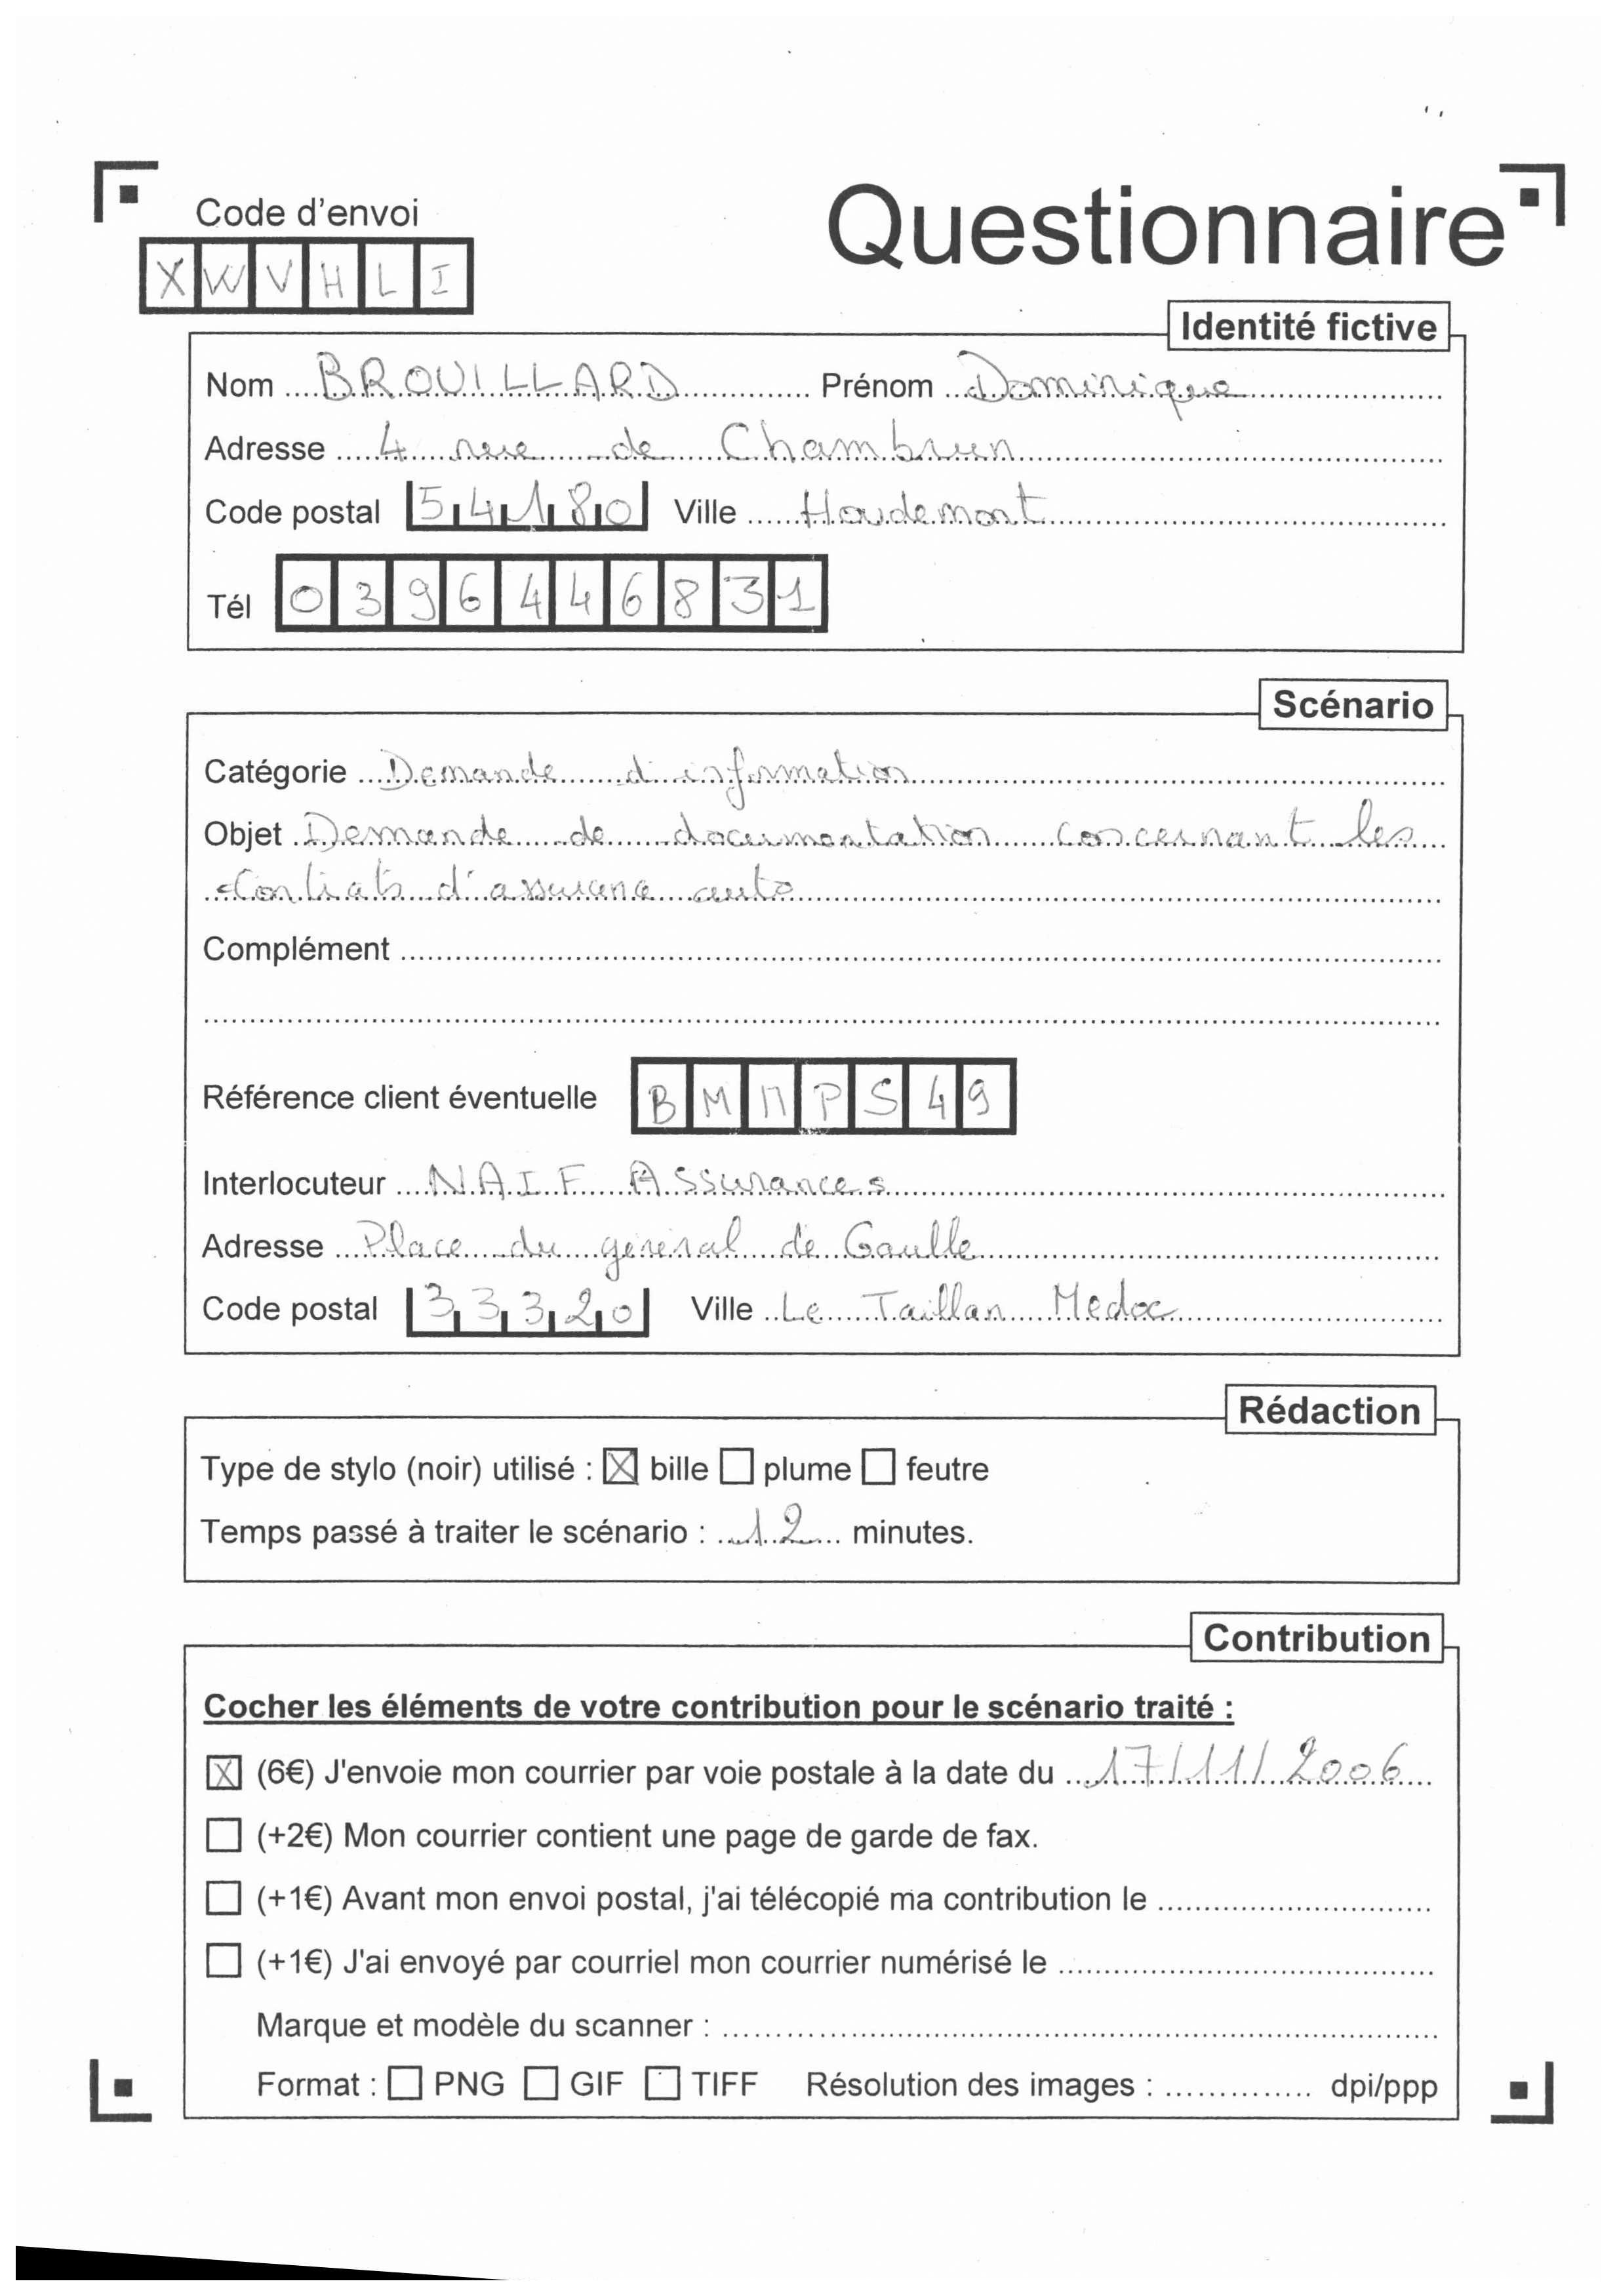 Code d'envoi
Questionnaire
X W V H L I
Identité fictive
Nom BROUILLARD Prénom Dominique
Adresse 4 rue de Chambrun
Code postal 54180 Ville Houdemont
Tél 0396446831
Scénario
Catégorie Demande d'information
Objet Demande de documentation concernant les
contrats d'assurance auto
Complément
Référence client éventuelle B M M P S 4 9
Interlocuteur NAIF Assurances
Adresse Place du géneral de Gaulle
Code postal 33320 Ville Le Taillan Medoc
Rédaction
Type de stylo (noir) utilisé : ☒ bille ☐ plume ☐ feutre
Temps passé à traiter le scénario : 12 minutes.
Contribution
Cocher les éléments de votre contribution pour le scénario traité :
☒ (6€) J'envoie mon courrier par voie postale à la date du 17/11/2006
☐ (+2€) Mon courrier contient une page de garde de fax.
☐ (+1€) Avant mon envoi postal, j'ai télécopié ma contribution le
☐ (+1€) J'ai envoyé par courriel mon courrier numérisé le
Marque et modèle du scanner :
Format : ☐ PNG ☐ GIF ☐ TIFF Résolution des images : dpi/ppp